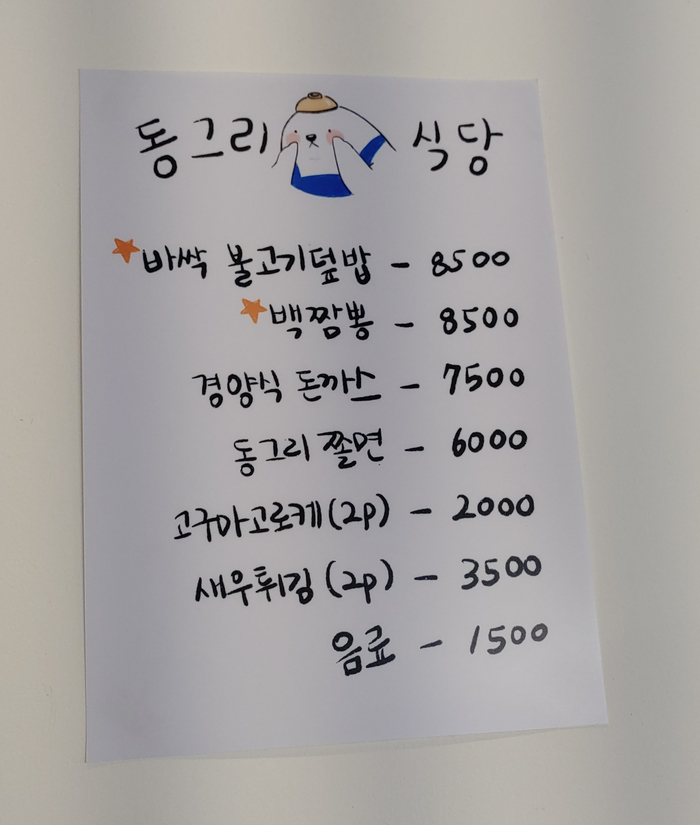 동그리 식당
바싹 불고기덮밥 - 8500
백짬뽕 - 8500
경양식 돈까스 - 7500
동그리 쫄면 - 6000
고구마고로케(2p) - 2000
새우튀김(2p) - 3500
음료 - 1500